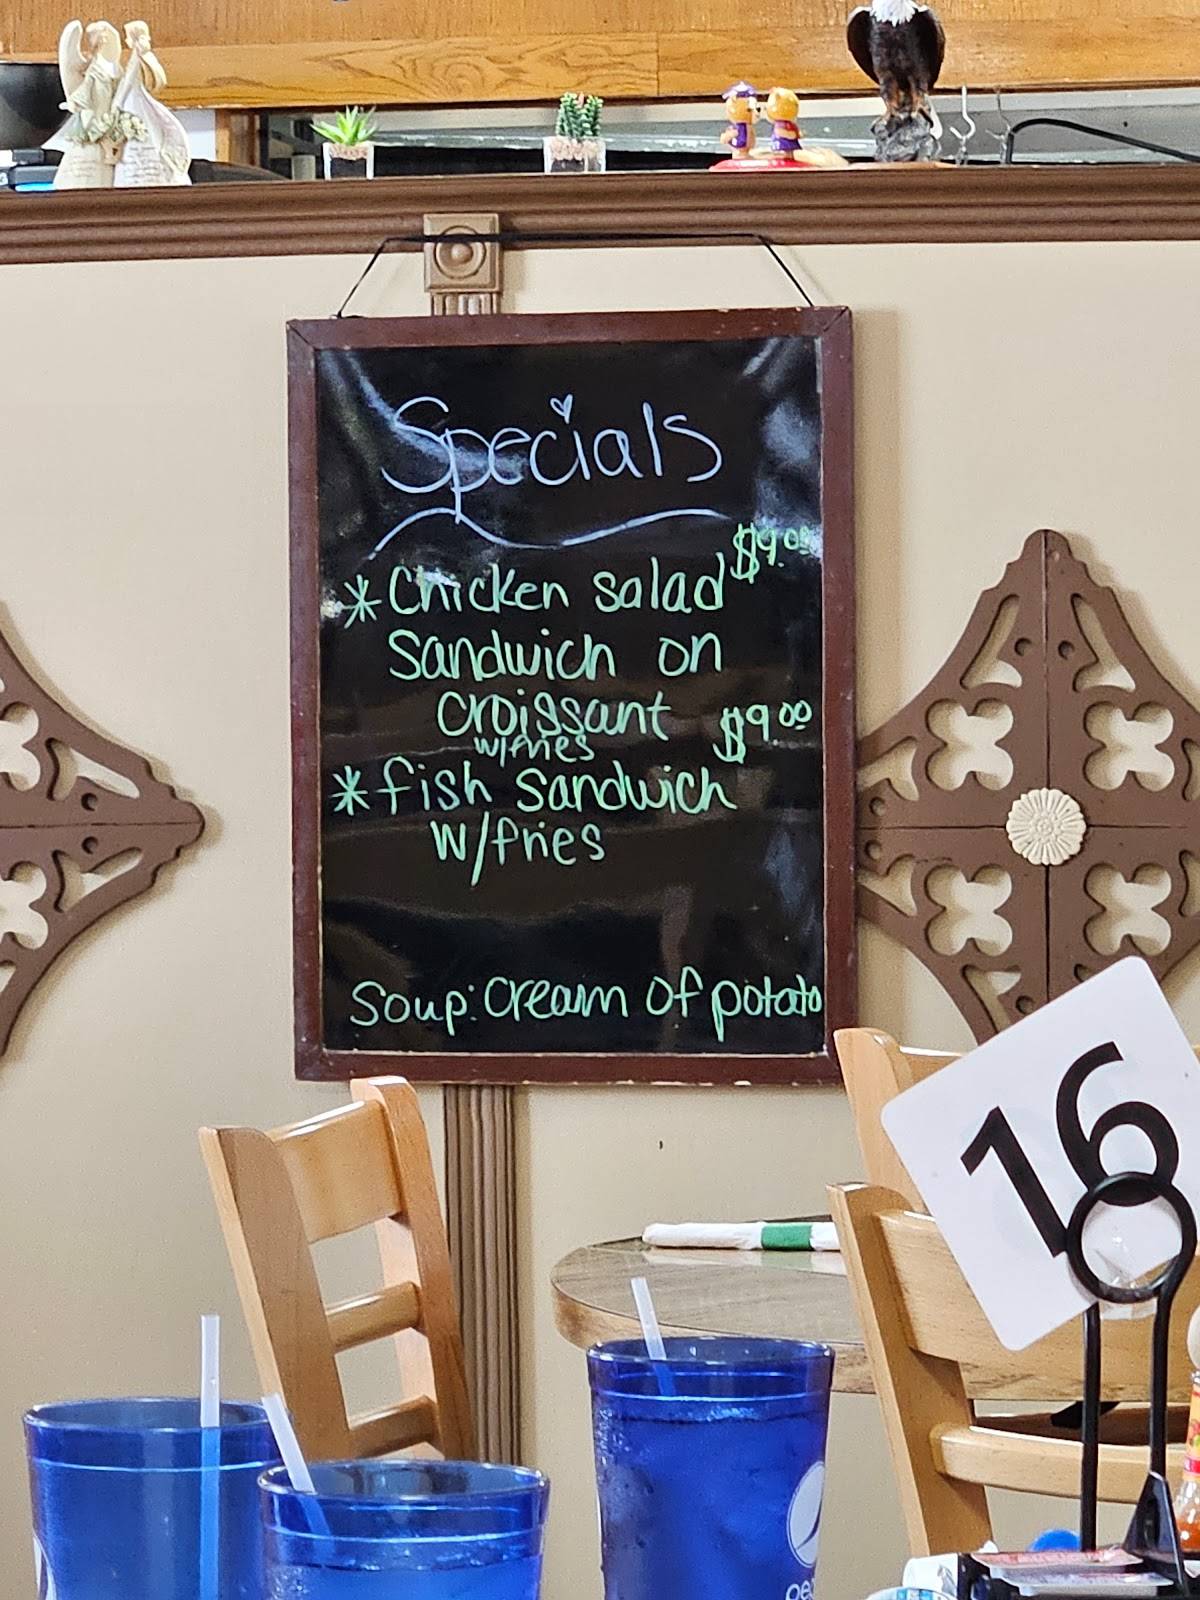 Specials
$9.00
* Chicken salad
Sandwich on
Croissant
w/fries
$9.00
* fish sandwich
w/fries
Soup: Cream of potato
16